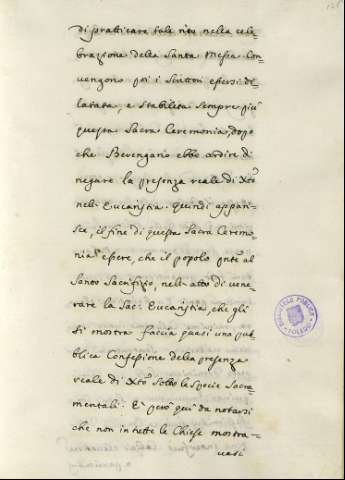 di pratticare tale rito nella cele-
brazione della Santa Messa. Con-
vengono poi i Scrittori essersi di-
latata, e stabilita sempre più
questa Sacra Ceremonia, dopo
che Berengario ebbe ardire di
negare la presenza reale di Xto
nell'Eucaristia. quindi appari-
sce, il fine di questa Sacra Ceremo-
nia essere, che il popolo pnte al
Santo Sacrifizio, nell'atto di vene-
rare la Sac: Eucaristia che gli
si mostra faccia quasi una pub-
blica Confessione della presenza
reale di Xto sotto le specie Sacra-
mentali. E però qui da notarsi
che non in tutte le Chiese mostra-
vasi
BIBLIOTECA PUBLICA
TOLEDO